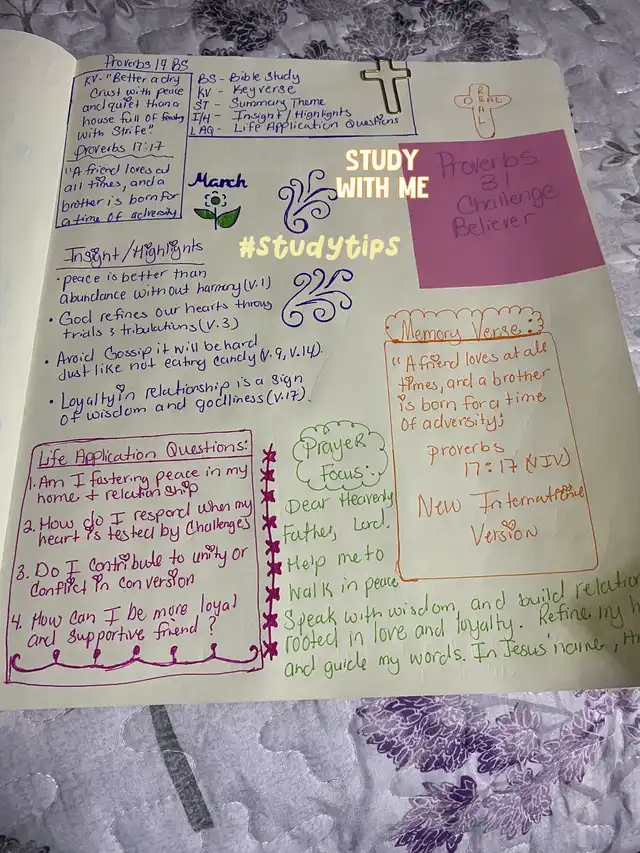 Proverbs 17 BS
KV- "Better a dry
Crust with peace
and quiet than a
house full of feasting
with Strife"
proverbs 17:17
"A friend loves at
all times, and a
brother is born for
a time of adversity
BS - Bible Study
KV - Keyverse
ST - Summary Theme
I/H - Insight/Highlights
LAQ - Life Application Questions
DEAL
REAL
STUDY
WITH ME
Proverbs
31
Challenge
Believer
March
#studytips
Insight/Highlights
• peace is better than
abundance without harmony (v.1)
• God refines our hearts throug
trials & tribulations (v.3)
• Avoid Gossip it will be hard
just like not eating candy (v.9, v.14).
• Loyalty in relationship is a sign
of wisdom and godliness (v.17).
Memory Verse:
"A friend loves at all
times, and a brother
is born for a time
of adversity;
proverbs
17:17 (NIV)
New International
Version
Life Application Questions:
1. Am I fostering peace in my
home + relationship
2. How do I respond when my
heart is tested by challenges
3. Do I contribute to unity or
conflict in conversion
4. How can I be more loyal
and supportive friend?
Prayer
Focus:
Dear Heavenly
Father, Lord.
Help me to
walk in peace
Speak with wisdom, and build relation
rooted in love and loyalty. Refine my h
and guide my words. In Jesus' name,